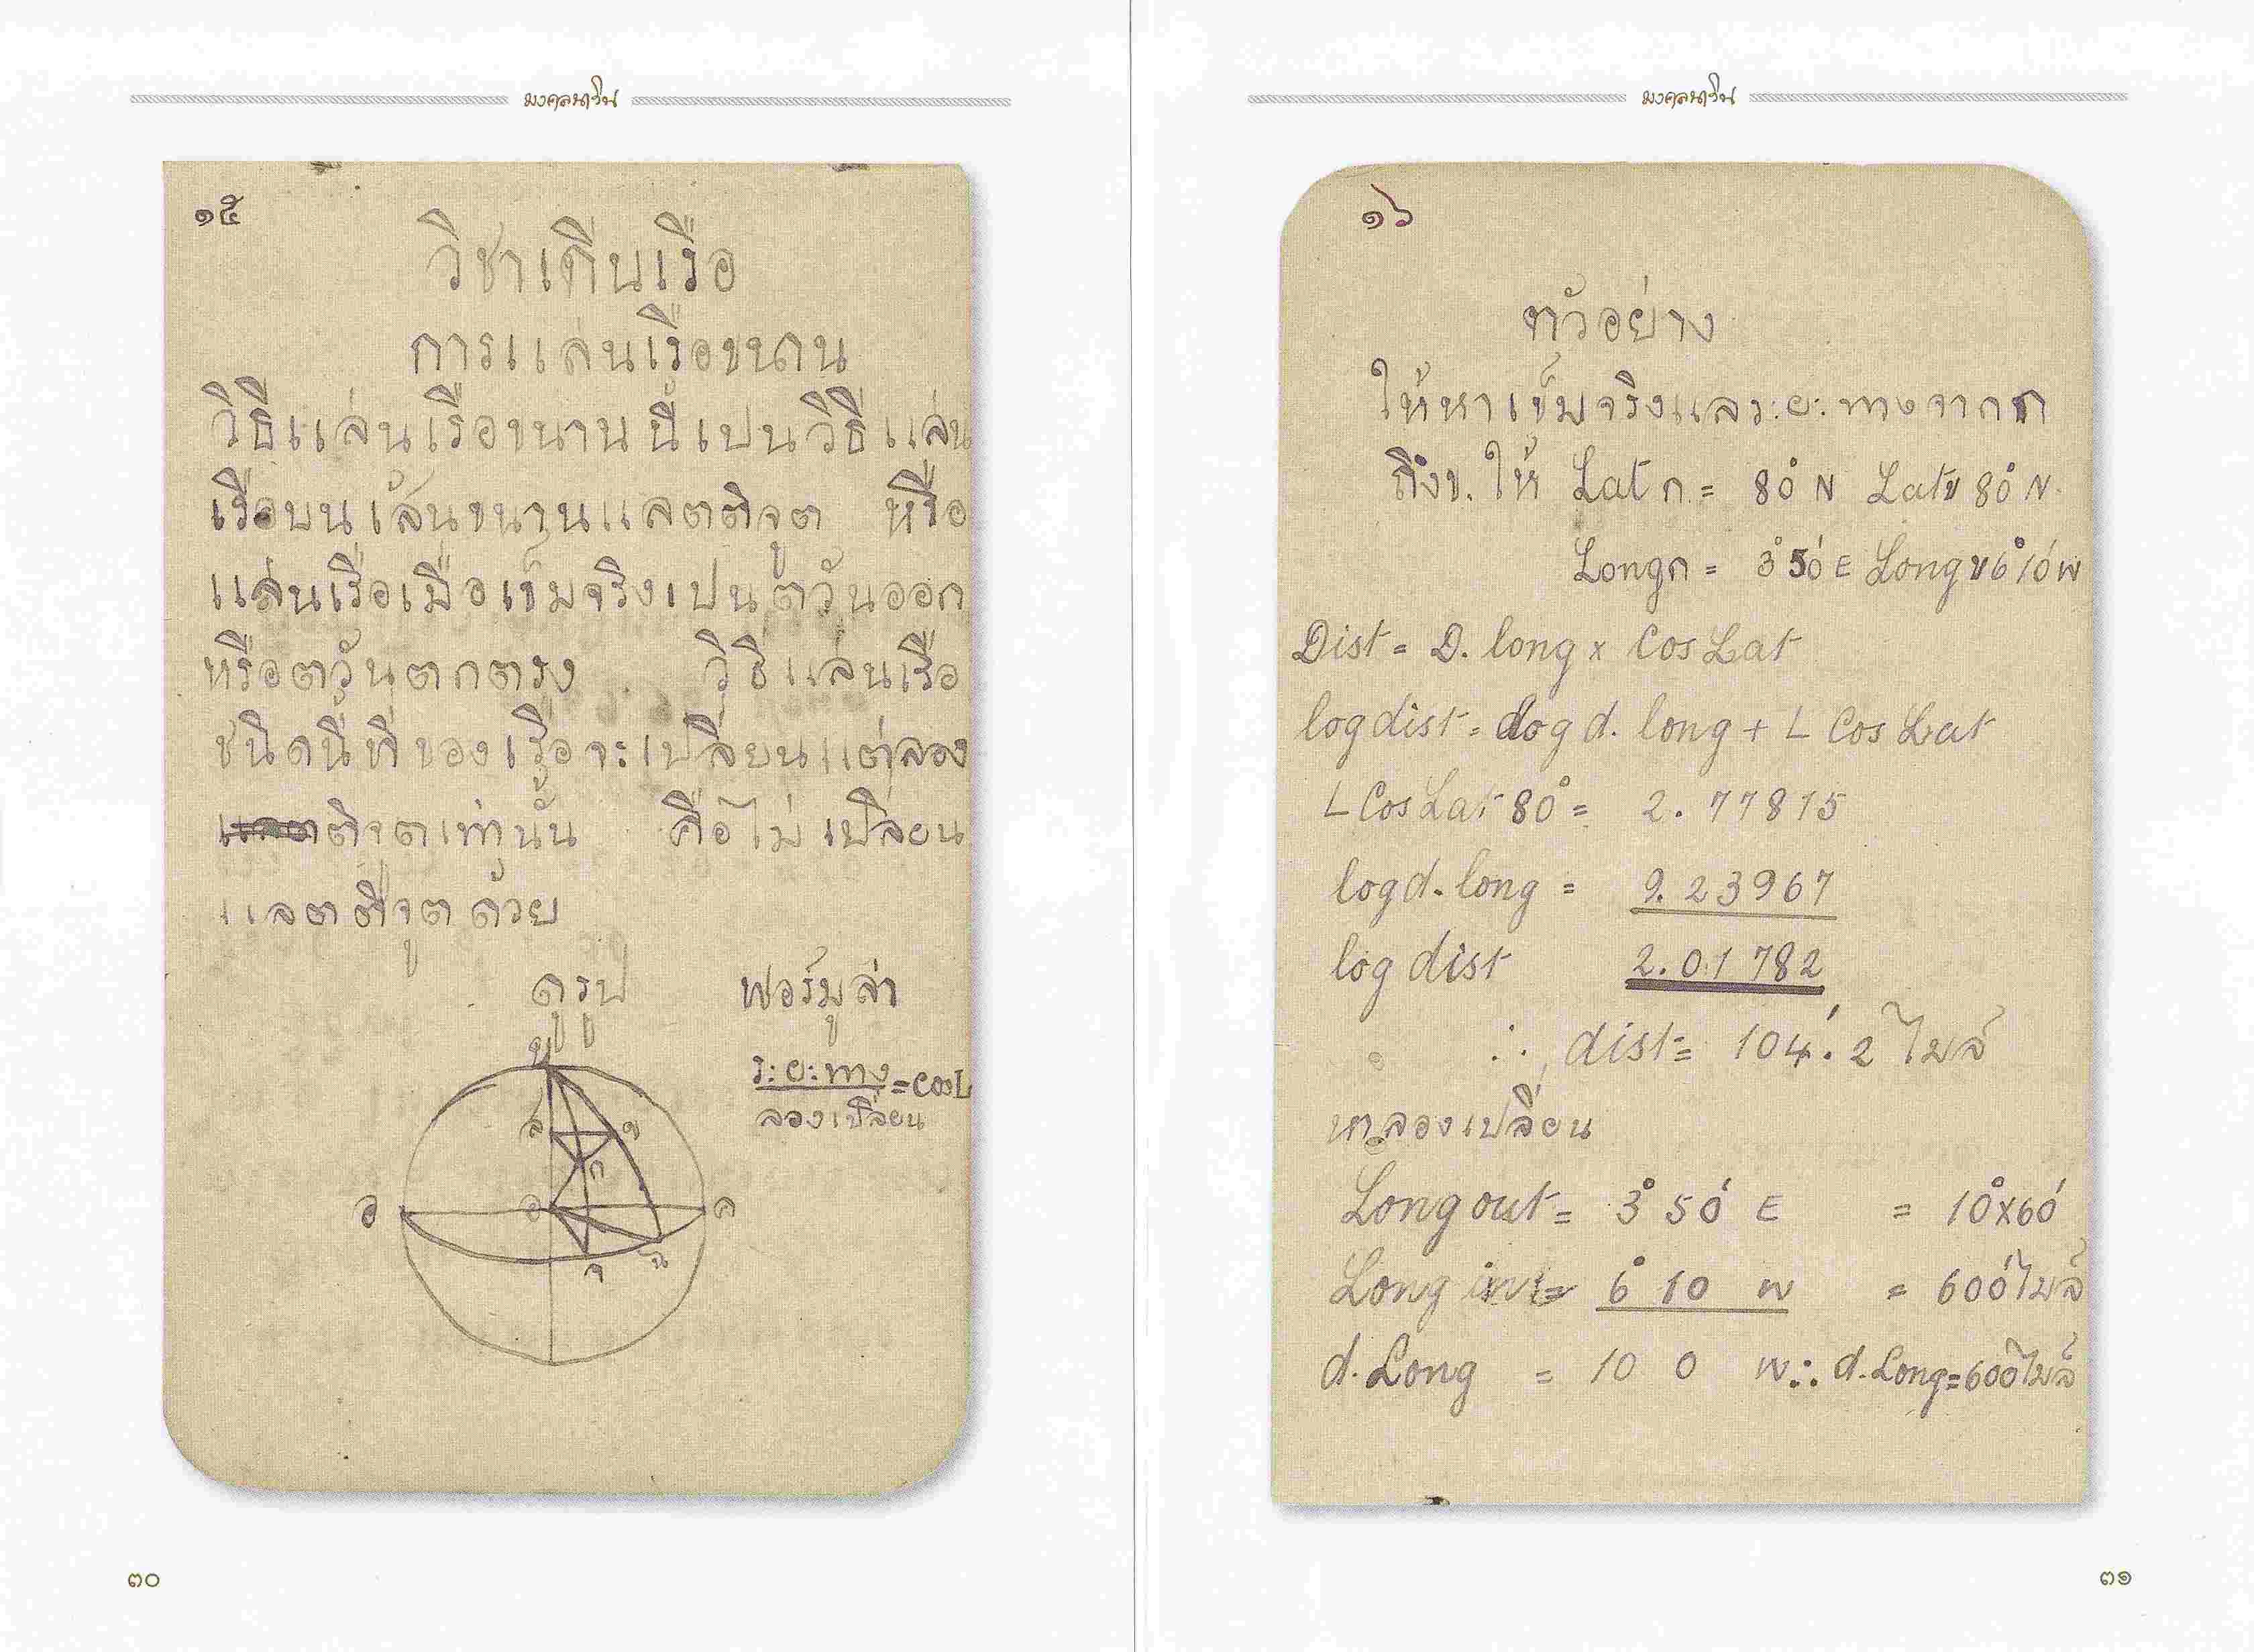 มงคลนาวิน
๑๕
วิชาเดินเรือ
การแล่นเรือขนาน
วิธีแล่นเรือขนานนี้เปนวิธีแล่น
เรือบนเส้นขนานแลตติจูต หรือ
แล่นเรือเมื่อเข็มจริงเปนตวันออก
หรือตวันตกตรง วิธีแล่นเรือ
ชนิดนี้ที่ของเรือจะเปลี่ยนแต่ลอง
ติจูตเท่านั้น คือไม่เปลี่ยน
แลตติจูตด้วย
ดูรูป ฟอร์มูล่า
ระยะทาง = cos L
ลองเปลี่ยน
น
ล ข
ก
อ อ ค
จ น
๓๐
มงคลนาวิน
๑๖
ตัวอย่าง
ให้หาเข็มจริงแลระยะทางจาก ก
ถึง ข. ให้ Lat ก = 80° N Lat ข 80° N.
Long ก = 3° 50' E Long ข 6° 10' W
Dist = D. long x Cos Lat
log dist = log d. long + L Cos Lat
L Cos Lat 80° = 2. 77815
log d. long = 9. 23967
log dist 2. 01782
∴ dist = 104'. 2 ไมล์
หาลองเปลี่ยน
Long out = 3° 50' E = 10° x 60'
Long in = 6° 10 W = 600' ไมล์
d. Long = 10 0 W ∴ d. Long = 600' ไมล์
๓๑